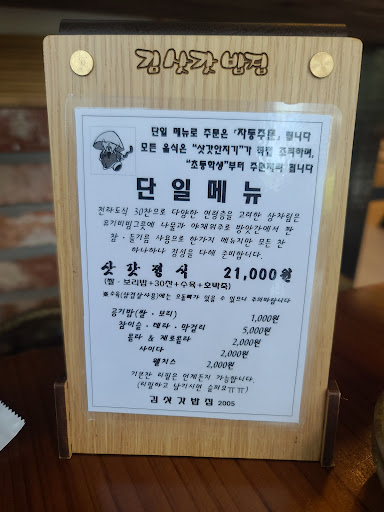 김삿갓밥집
단일 메뉴로 주문은 "자동주문" 됩니다
모든 음식은 "삿갓안지기"가 직접 조리하며,
"초등학생"부터 주문하셔야 됩니다
단일메뉴
전라도식 30찬으로 다양한 연령층을 고려한 상차림은
유기비빔그릇에 나물과 야채위주로 방앗간에서 짠
참·들기름 사용으로 한가지 메뉴지만 모든 찬
하나하나 정성을 다해 준비합니다.
삿갓정식 21,000원
(쌀·보리밥+30찬+수육+호박죽)
※수육(삼겹살사용)에는 오돌뼈가 있을 수 있으니 주의바랍니다
공기밥(쌀·보리) 1,000원
참이슬·테라·막걸리 5,000원
콜라 & 제로콜라 2,000원
사이다 2,000원
웰치스 2,000원
기본찬 리필은 언제든지 가능합니다.
(리필하고 남기시면 슬퍼요ㅠㅠ)
김삿갓밥집 2005